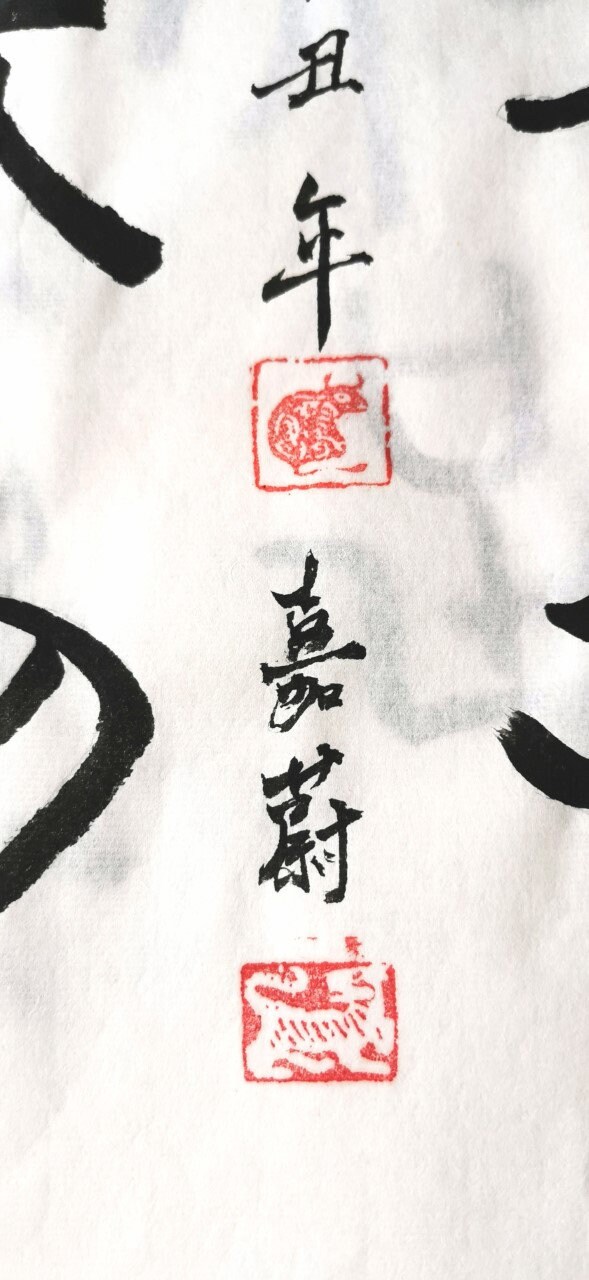 丑年
嘉蔚